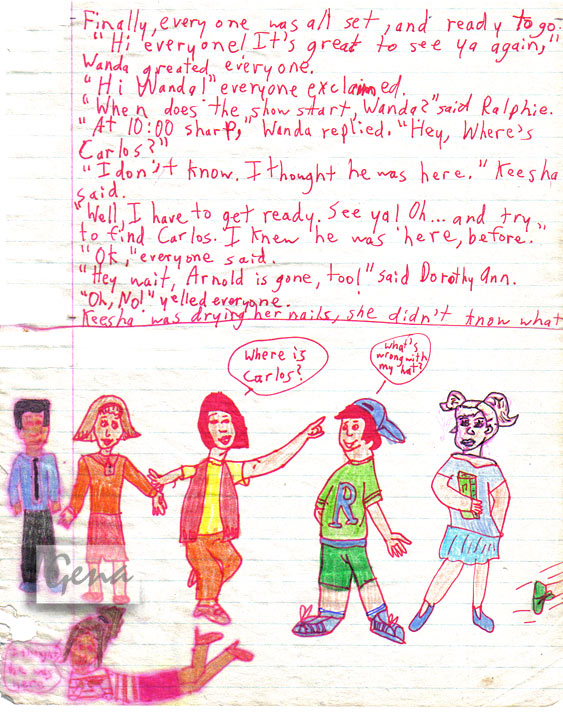 Finally, every one was all set, and ready to go.
"Hi everyone! It's great to see ya again,"
Wanda greated everyone.
"Hi Wanda!" everyone exclaimed.
"When does the show start, Wanda?" said Ralphie.
"At 10:00 sharp," Wanda replied. "Hey, Where's
Carlos?"
"I don't know. I thought he was here." Keesha
said.
"Well, I have to get ready. See ya! Oh... and try
to find Carlos. I knew he was here, before."
"Ok," everyone said.
"Hey wait, Arnold is gone, too!" said Dorothy Ann.
"Oh, No!" yelled everyone.
Keesha was drying her nails, she didn't know what
Where is
Carlos?
What's
wrong with
my hat?
R
Gena
I thought
he was
here